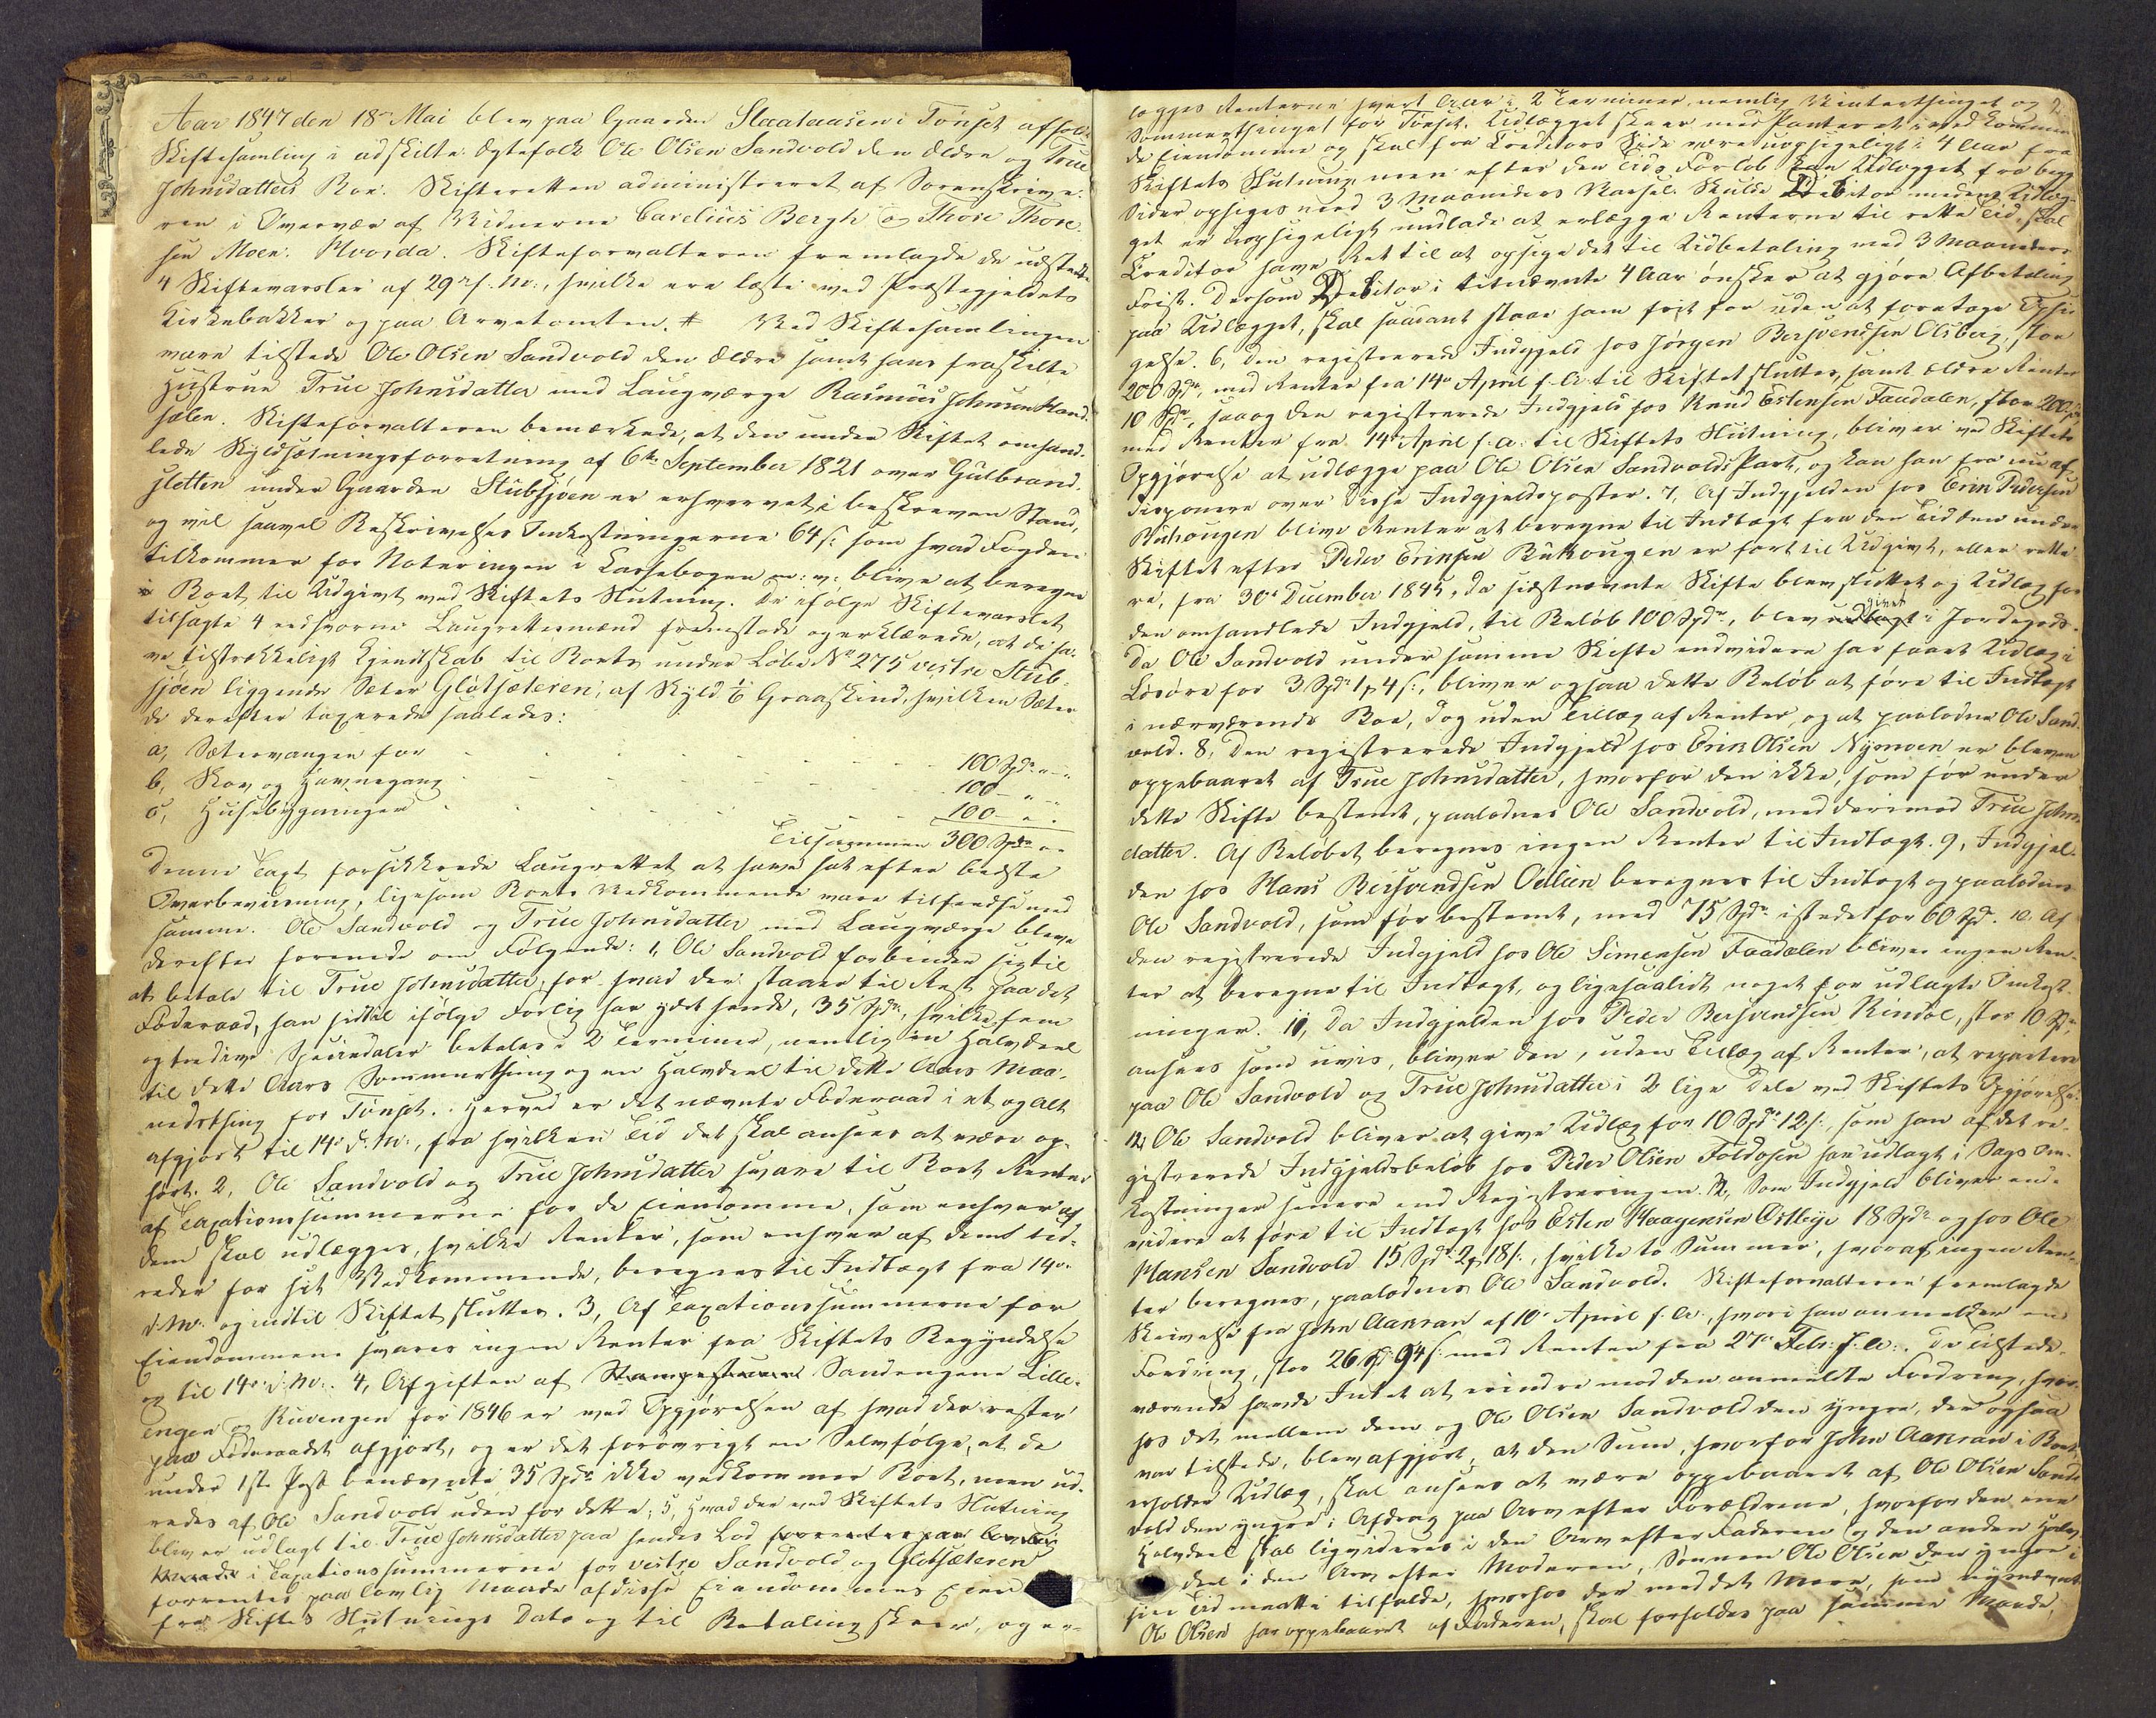 Aar 1847 den 18de Mai blev paa Gaarden Slaataasen i Tönset afholdt
Skiftesamling i adskilte Ægtefolk Ole Olsen Sandvold den Ældre og True
Johnsdatters Boe. Skifteretten administreret af Sorenskrive-
ren i Overvær af Vidnerne Carelius Bergh og Thore Thore-
sen Moen. Hvorda. Skifteforvalteren fremlagde de udstedte
4 Skiftevarsler af 29 f. M., hvilke ere læste ved Præstegjeldets
Kirkebakker og paa Arvetomten. # Ved Skiftesamlingen
vare tilstede Ole Olsen Sandvold den Ældre samt hans fraskilte
Hustrue True Johnsdatter med Laugværge Rasmus Johnsen Hand-
sælen. Skifteforvalteren bemærkede, at den under Skiftet omhand-
lede Skyldsætningsforretning af 6te September 1821 over Gulbrand-
sletten under Gaarden Stubsjøen er erhvervet i beskreven Stand,
og vil saavel Beskrivelses Omkostningerne 64 s: som hvad Fogden
tilkommer for Noteringen i Cassebogen m: v: blive at beregne
i Boet til Udgivt ved Skiftets Slutning. De ifølge Skiftevarslet
tilsagte 4 eedsvorne Laugrettesmænd fremstode og erklærede, at de ha-
ve tilstrækkeligt Kjendskab til Boets under Løbe No 275 vestre Stub-
sjøen liggende Sæter Gløtsæteren, af Skyld 1/6 Graaskind, hvilken Sæter
de derefter taxerede saaledes:
a, Sætervangen for 100 Spd " "
b, Skov og Havnegang 100 " "
c, Husebygninger 100 " "
Tilsammen 300 Spd " "
Denne Taxt forsikkrede Laugrettet at have sat efter bedste
Overbeviisning, ligesom Boets Vedkommende vare tilfredse med
samme. Ole Sandvold og True Johnsdatter med Laugværge bleve
derefter forenede om Følgende: 1, Ole Sandvold forbinder sig til
at betale til True Johnsdatter, for hvad der staaer til Rest paa det
Føderaad, han hidtil ifølge Forlig har ydet hende, 35 Spd, hvilke fem
og tredive Speciedaler betales i 2 Terminer, nemlig en Halvdeel
til dette Aars Sommerthing og en Halvdeel til dette Aars Maa-
nedsthing for Tönset. Herved er det nævnte Føderaad i et og Alt
afgjort til 14de d. M., fra hvilken Tid det skal ansees at være op-
hørt. 2, Ole Sandvold og True Johnsdatter svare til Boet Renter
af Taxationssummerne for de Eiendomme, som enhver af
dem skal udlægges, hvilke Renter, som enhver af dem ud-
reder for sit Vedkommende, beregnes til Indtægt fra 14de
d. M. og indtil Skiftet slutter. 3, Af Taxationssummerne for
Eiendommene svares ingen Renter fra Skiftets Begyndelse
og til 14de d. M. 4, Afgiften af Sandengene Lille-
engen og Ruvengen for 1846 er ved Opgjørelsen af hvad der rester
paa Føderaadet afgjort, og er det forøvrigt en Selvfølge, at de
under 1ste Post benævnte 35 Spd ikke vedkommer Boet, men ud-
redes af Ole Sandvold uden for dette. 5, Hvad der ved Skiftets Slutning
bliver udlagt til True Johnsdatter paa hendes Lod
i Taxationssummerne for vestre Sandvold og Gløtsæteren
forrentes paa lovlig Maade af disse Eiendommes Eier
fra Skiftets Slutnings Dato og til Betaling skeer, og er-
2.
lægges Renterne hvert Aar i 2 Terminer, nemlig Vinterthinget og
Sommerthinget for Tönset. Udlægget skeer med Panteret i vedkommen-
de Eiendomme og skal fra Creditors Side være uopsigeligt i 4 Aar fra
Skiftets Slutning, men efter den Tids Forløb kan Udlægget fra begge
Sider opsiges med 3 Maaneders Varsel. Skulde Debitor medens Udlæg-
get er uopsigeligt undlade at erlægge Renterne til rette Tid, skal
Creditor have Ret til at opsige det til Udbetaling med 3 Maaneders
Frist. Dersom Debitor i bemeldte 4 Aar ønsker at gjøre Afbetaling
paa Udlægget, skal saadant staae ham frit for uden at foretage Opsi-
gelse. 6, Den registrerede Indgjeld hos Jörgen Bersvendsen Olsberg, stor
200 Spd, med Renter fra 14de April f. A. til Skiftet slutter, samt ældre Renter
10 Spd, saa og den registrerede Indgjeld hos Knud Estensen Faadalen, stor 200 Spd
med Renter fra 14de April f. A. til Skiftets Slutning, bliver ved Skiftets
Opgjørelse at udlægge paa Ole Olsen Sandvolds Part, og kan han fra nu af
disponere over disse Indgjeldsposter. 7, Af Indgjelden hos Erik Pedersen
Ruhougen blive Renter at beregne til Indtægt fra den Tid den under
Skiftet efter Peder Eriksen Ruhougen er ført til Udgivt, eller rette-
re, fra 30te December 1845, da sidstnævnte Skifte blev sluttet og Udlæg for
den omhandlede Indgjeld, til Beløb 100 Spd, blev givet i Jordegods.
Da Ole Sandvold under samme Skifte endvidere har faaet Udlæg i
Løsøre for 3 Spd 1 ₰ 4 s:, bliver ogsaa dette Beløb at føre til Indtægt
i nærværende Boe, dog uden Tillæg af Renter, og at paalodne Ole Sand-
vold. 8, Den registrerede Indgjeld hos Erik Olsen Nymoen er bleven
oppebaaret af True Johnsdatter, hvorfor den ikke, som før under
dette Skifte bestemt, paalodnes Ole Sandvold, med derimod True Johns-
datter. Af Beløbet beregnes ingen Renter til Indtægt. 9, Indgjel-
den hos Hans Bersvendsen Odlien beregnes til Indtægt og paalodnes
Ole Sandvold, som før bestemt, med 75 Spd istedet for 60 Spd. 10, Af
den registrerede Indgjeld hos Ole Simensen Faadalen bliver ingen Ren-
ter at beregne til Indtægt, og ligesaalidt noget for udlagte Omkost-
ninger. 11, Da Indgjelden hos Peder Bersvendsen Rindal, stor 10 Spd
ansees som uvis, bliver den, uden Tillæg af Renter, at repartere
paa Ole Sandvold og True Johnsdatter i 2 lige Dele ved Skiftets Opgjørelse.
12, Ole Sandvold bliver at give Udlæg for 10 Spd 12 s:, som han af det re-
gistrerede Indgjeldsbeløb hos Peder Olsen Foldosen har udlagt i Sags Om-
kostninger senere end Registreringen. 12, Som Indgjeld bliver end-
videre at føre til Indtægt hos Esten Haagensen Østbye 18 Spd og hos Ole
Hansen Sandvold 15 Spd 2 ₰ 18 s:, hvilke to Summer, hvoraf ingen Ren-
ter beregnes, paalodnes Ole Sandvold. Skifteforvalteren fremlagde
Skrivelse fra John Aanran af 10de April f. A., hvori han anmelder en
Fordring, stor 26 Spd 94 s: med Renter fra 27de Febr. f. A. De Tilstede-
værende havde Intet at erindre mod den anmeldte Fordring, hvor-
hos det mellem dem og Ole Olsen Sandvold den yngre, der ogsaa
var tilstede, blev afgjort, at den Sum, hvorfor John Aanran i Boet
erholder Udlæg, skal ansees at være oppebaaret af Ole Olsen Sand-
vold den yngre i Afdrag paa Arv efter Forældrene, hvorfor den ene
Halvdeel skal liqvideres i den Arv efter Faderen og den anden Halv-
deel i den Arv efter Moderen, Sønnen Ole Olsen den yngre i
sin Tid maatte tilfalde, hvorhos der med det Mere, som nysnævnte
Ole Olsen har oppebaaret af Faderen, skal forholdes paa samme Maade,